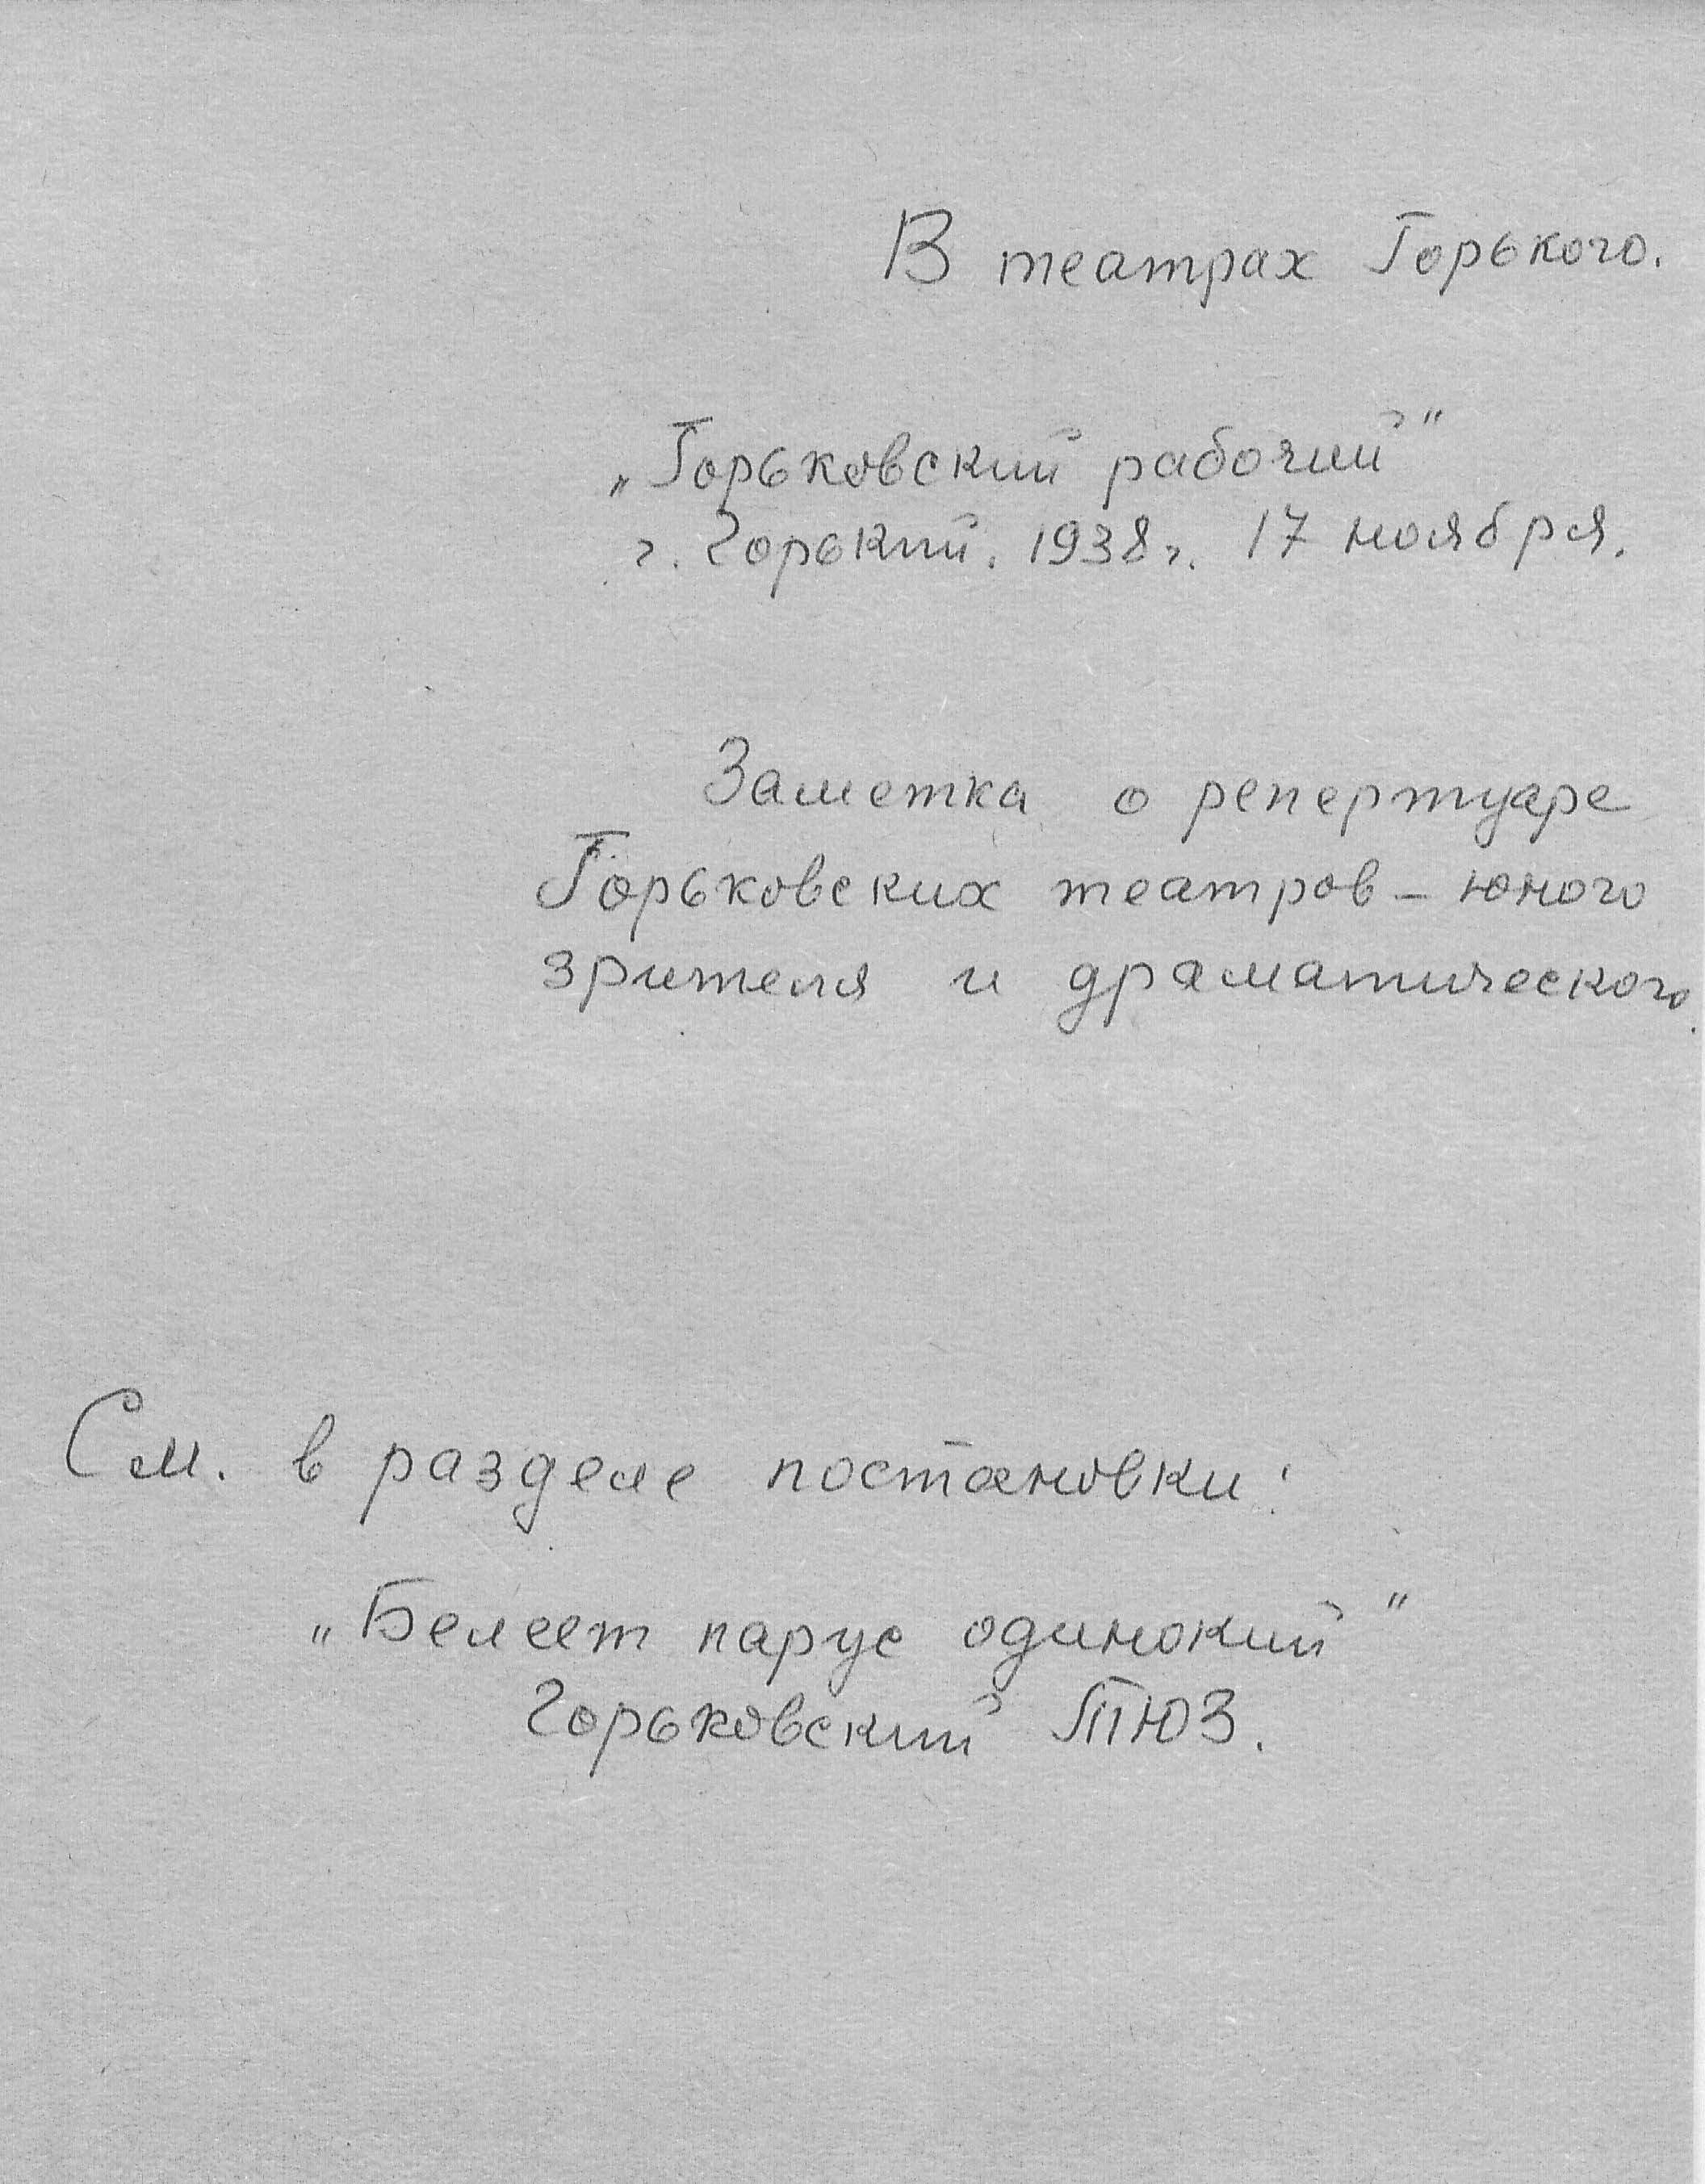 В театрах Горького.
„Горьковский рабочий"
г. Горький. 1938г. 17 ноября.
Заметка о репертуаре
Горьковских театров – юного
зрителя и драматического.
См. в разделе постановки:
„Белеет парус одинокий"
Горьковский ТЮЗ.